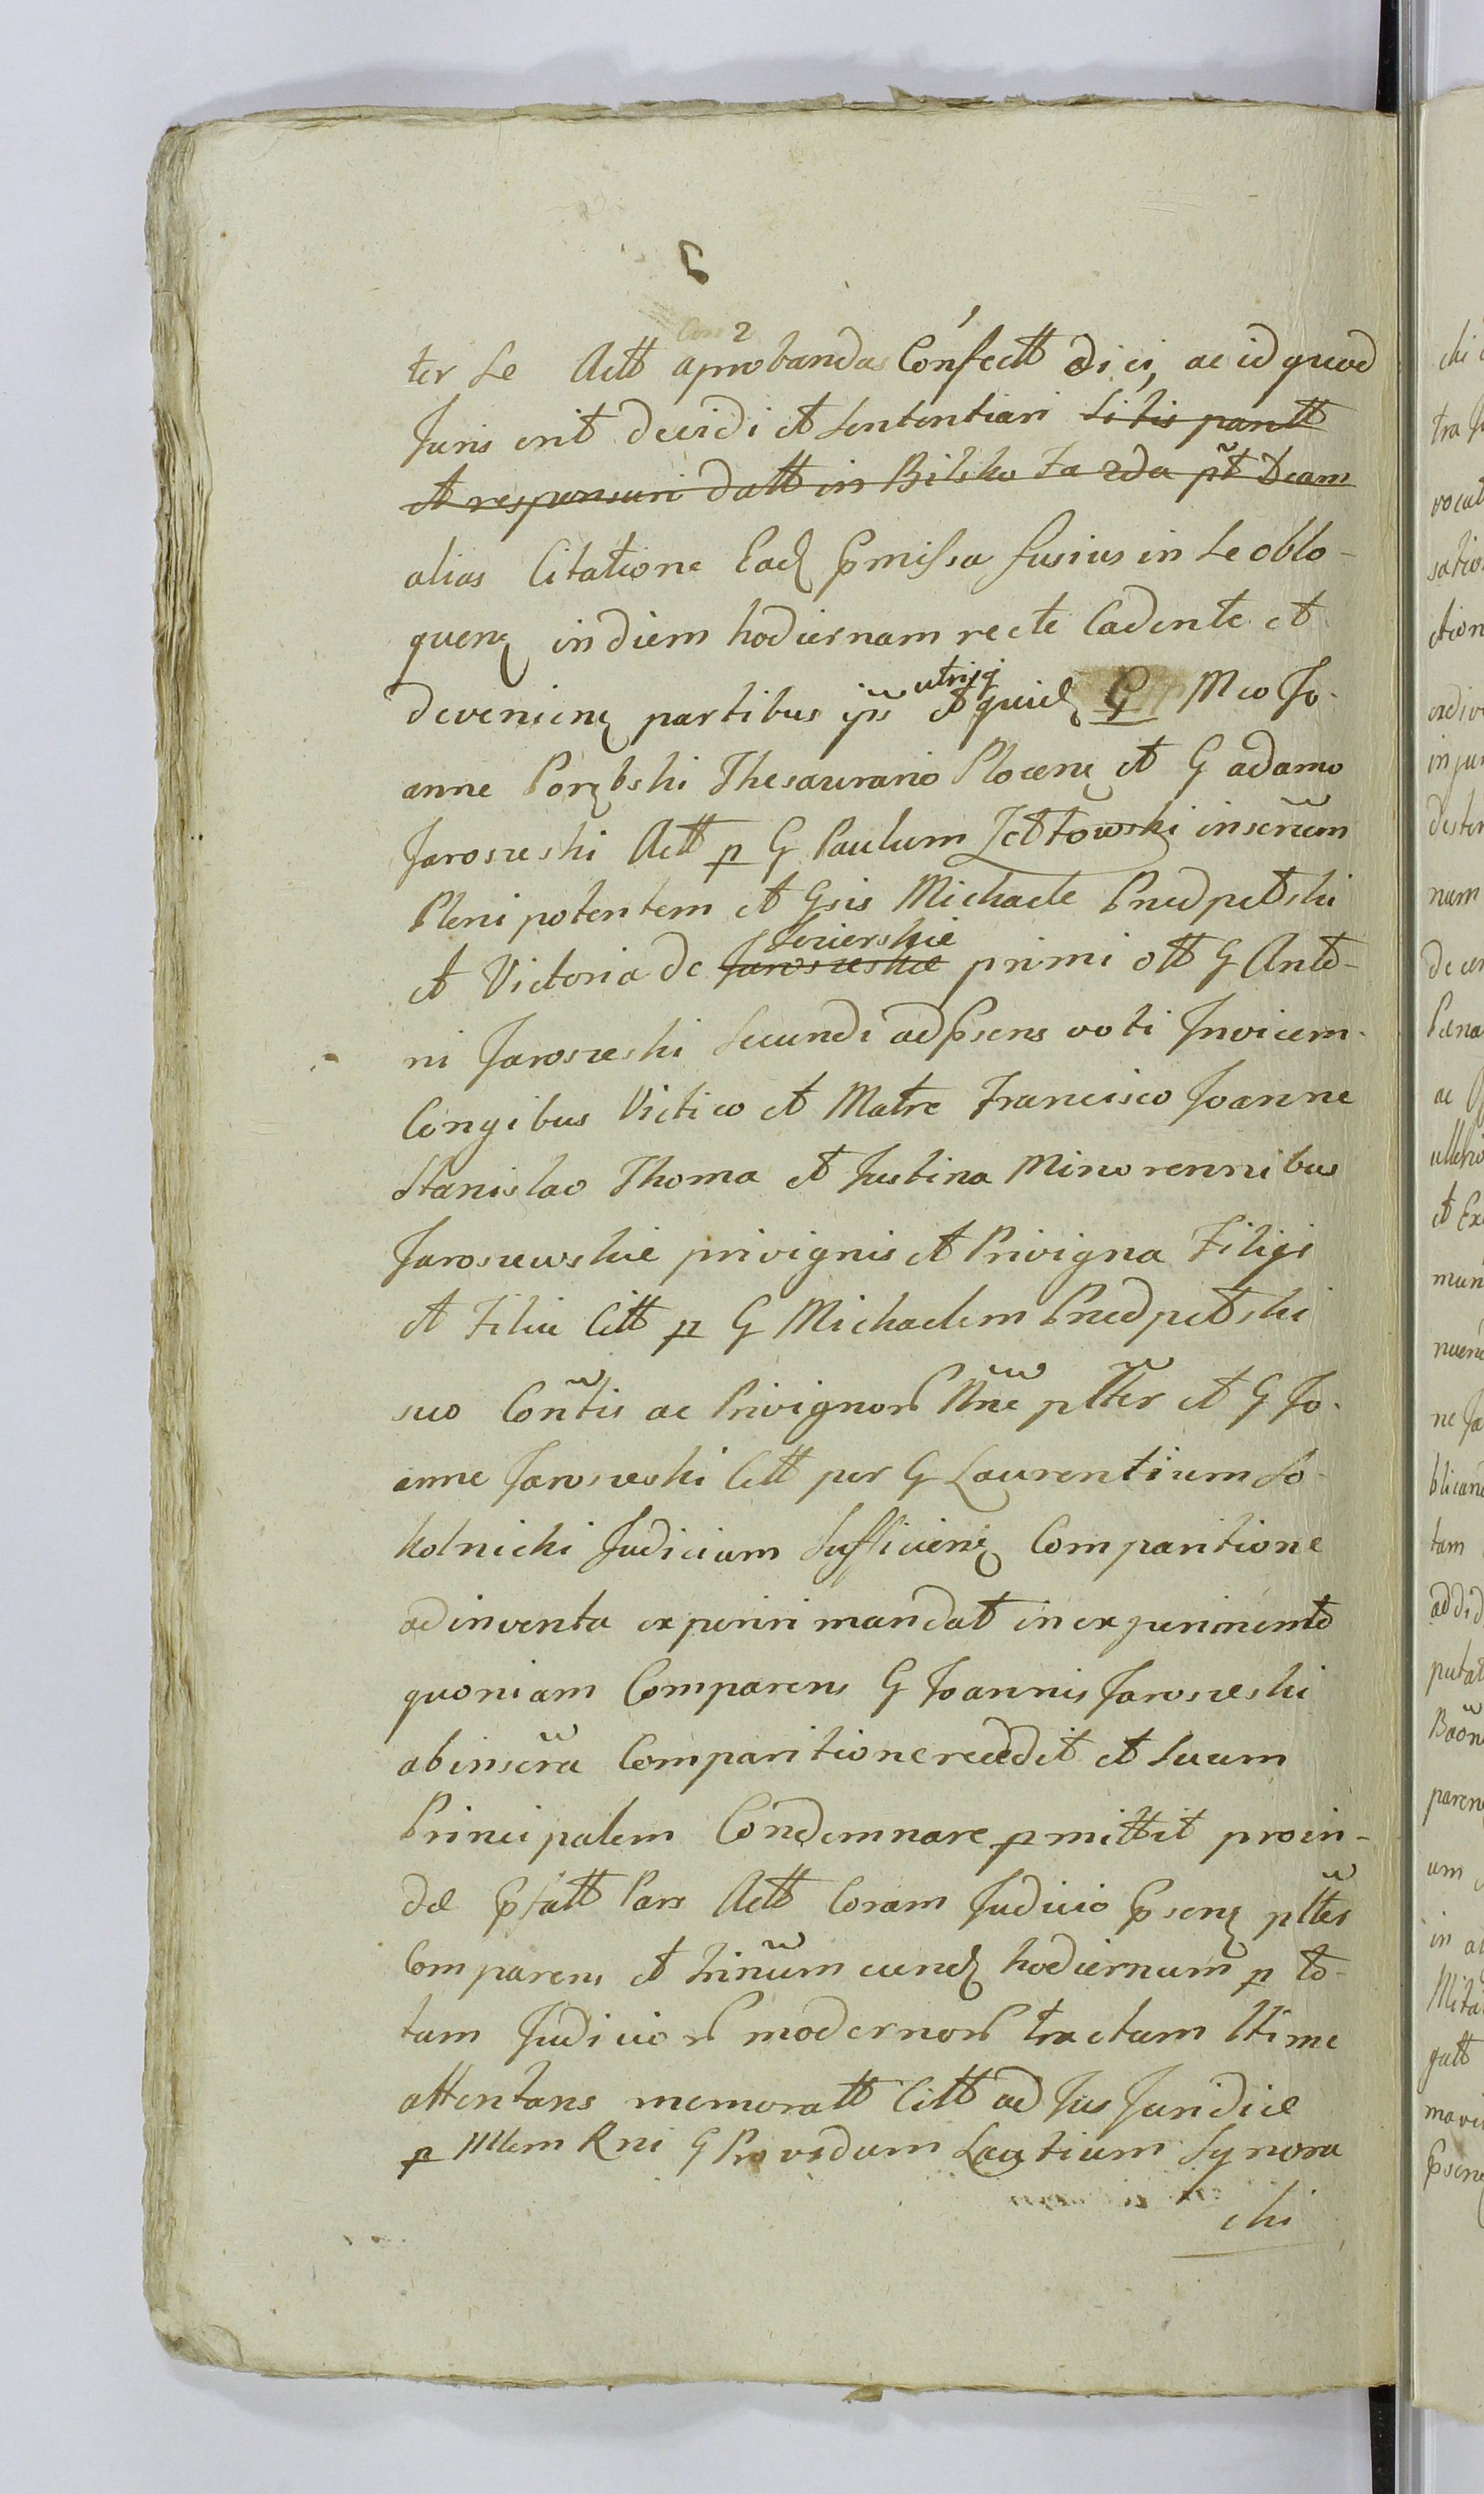 6
ter se Actt aprobandas Confectt dici, ac id quod
Juris erit decidi et sententiari sitis partt
et responsuri datt in Bilsko Fa 2da pt Dcam
alias Citatione Ead pmissa fusius in se oblo-
quen in diem hodiernam recte Cadente et
utrisq
devenien partibus ipis et quid G Mco Jo-
anne Porębski Thesaurario Plocen et G adamo
Jaroszeski Actt p G Paulum Zettowski inscrum
Plenipotentem et Gsis Michaele Przedpetski
Szeierskie
et Victoria de Jaroszeskie primi ott G Anto-
ni Jaroszeski Secundi ad psens voti Invicem
Congibus Victico et Matre Francisco Joanne
Stanislao Thoma et Justina Minorennibus
Jaroszewskie privignis et Privigna Filijs
et Filia Citt p G Michaelem Przedpetski
suo Contis ac Privignor Nne plter et G Jo-
anne Jaroszeski Citt per G Laurentium So-
kolnicki Judicium Sufficien Comparitione
adinventa experiri mandat in experimento
quoniam Comparens G Joannis Jaroszeski
ab inscra Comparitione recedit et suum
Principalem Condemnare pmittit proin-
de pfatt Pars Actt Coram Judicio psen plter
Comparens et trinum eund hodiernum p to-
tam Judicior modernor tractum ltime
attentans memoratt Citt ad Jus Juridice
p Mlem Rni G Providum Synora
cki